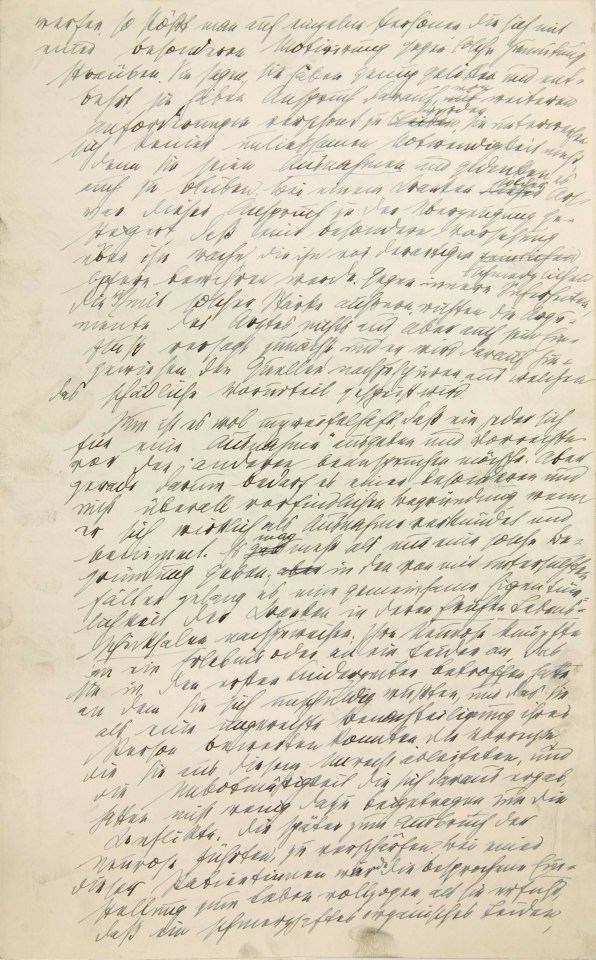 werfen, so stößt man auf einzelne Personen die sich mit
einer besonderen Motivierung gegen solche Zumutung
sträuben. Sie sagen, sie haben genug gelitten und ent-
behrt, sie haben Anspruch darauf, von weiteren
Anforderungen verschont zu werden, sie unterwerfen
sich keiner unliebsamen Notwendigkeit mehr
denn sie seien Ausnahmen und gedenken es
auch zu bleiben. Bei einem Kranken solcher Art
war dieser Anspruch zu der Überzeugung ge-
steigert, daß eine besondere Vorsehung
über ihn wache, die ihn vor derartigen schmerzlichen
Opfern bewahren werde. Gegen innere Sicherheiten,
die sich mit solcher Stärke äußern, richten die Argu-
mente des Arztes nichts aus aber auch sein Ein-
fluß versagt zunächst und er wird darauf hin-
gewiesen den Quellen nachzuspüren aus welchen
das schädliche Vorurteil gespeist wird.
Nun ist es wol unzweifelhaft, daß ein jeder sich
für eine „Ausnahme“ ausgeben und Vorrechte
vor den anderen beanspruchen möchte. Aber
gerade darum bedarf es einer besonderen und
nicht überall vorfindlichen Begründung wenn
er sich wirklich als Ausnahme verkündet und
benimmt. Es mag mehr als nur eine solche Be-
gründung geben, in den von mir untersuchten
Fällen gelang es, eine gemeinsame Eigentüm-
lichkeit der Kranken in deren frühen Lebens-
schicksalen nachzuweisen. Ihre Neurose knüpfte
an ein Erlebnis oder an ein Leiden an das
sie in den ersten Kinderzeiten betroffen hatte
an dem sie sich unschuldig wußten, und das sie
als eine ungerechte Benachteiligung ihrer
Person bewerten konnten. Die Vorrechte,
die sie aus diesem Unrecht ableiteten, und
die Unbotmäßigkeit die sich daraus ergab
hatten nicht wenig dazu beigetragen um die
Konflikte, die später zum Ausbruch der
Neurose führten, zu verschärfen. Bei einer
dieser Patientinnen wurde die besprochene Ein-
stellung zum Leben vollzogen als sie erfuhr,
daß ein schmerzhaftes organisches Leiden,